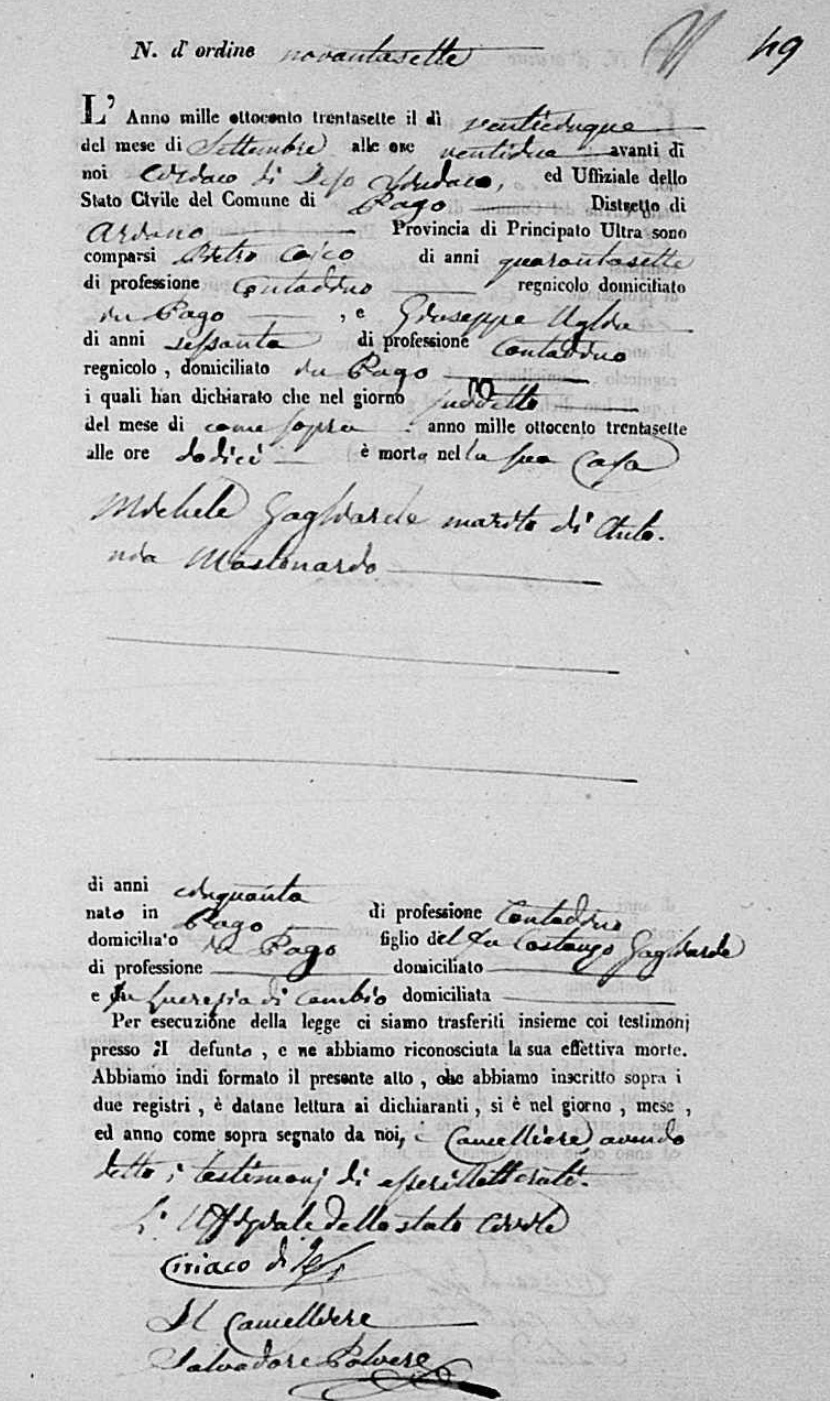 N. d'ordine novantasette 49
L'Anno mille ottocento trentasette il dì venticinque
del mese di Settembre alle ore ventidue avanti di
noi Ciriaco di Sindaco, ed Uffiziale dello
Stato Civile del Comune di Pago Distretto di
Ariano Provincia di Principato Ultra sono
comparsi Pietro di anni quarantasette
di professione Contadino regnicolo domiciliato
in Pago , e Giuseppe
di anni sessanta di professione Contadino
regnicolo , domiciliato in Pago
i quali han dichiarato che nel giorno suddetto
del mese di come sopra anno mille ottocento trentasette
alle ore dodici è morto nella sua Casa
Michele Gagliarde marito di Anto-
nia Mastonardo
di anni cinquanta
nato in Pago di professione Contadino
domiciliato in Pago figlio del fu Costanzo Gagliarde
di professione domiciliato
e fu di Cambio domiciliata
Per esecuzione della legge ci siamo trasferiti insieme coi testimonj
presso il defunto , e ne abbiamo riconosciuta la sua effettiva morte.
Abbiamo indi formato il presente atto , che abbiamo inscritto sopra i
due registri , è datane lettura ai dichiaranti , si è nel giorno , mese ,
ed anno come sopra segnato da noi, e Cancelliere, avendo
detto i testimonj di essere illetterati.
L'Uffiziale dello stato Civile
Ciriaco di
Il Cancelliere
Salvadore Polvere